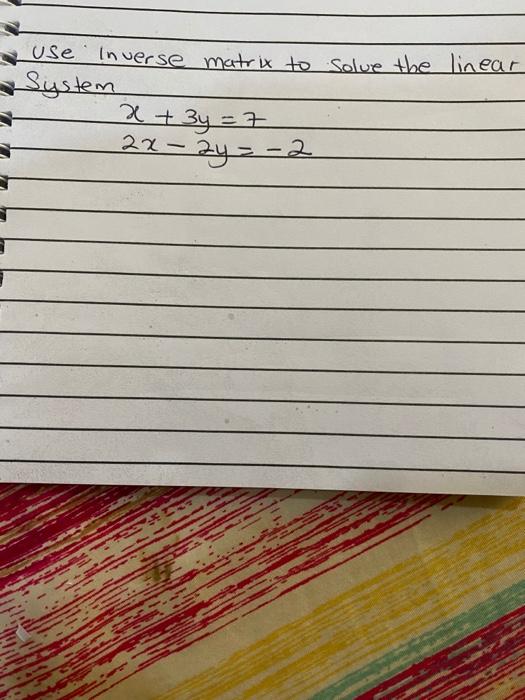 Use inverse matrix to solve the linear
System
x + 3y = 7
2x - 2y = -2